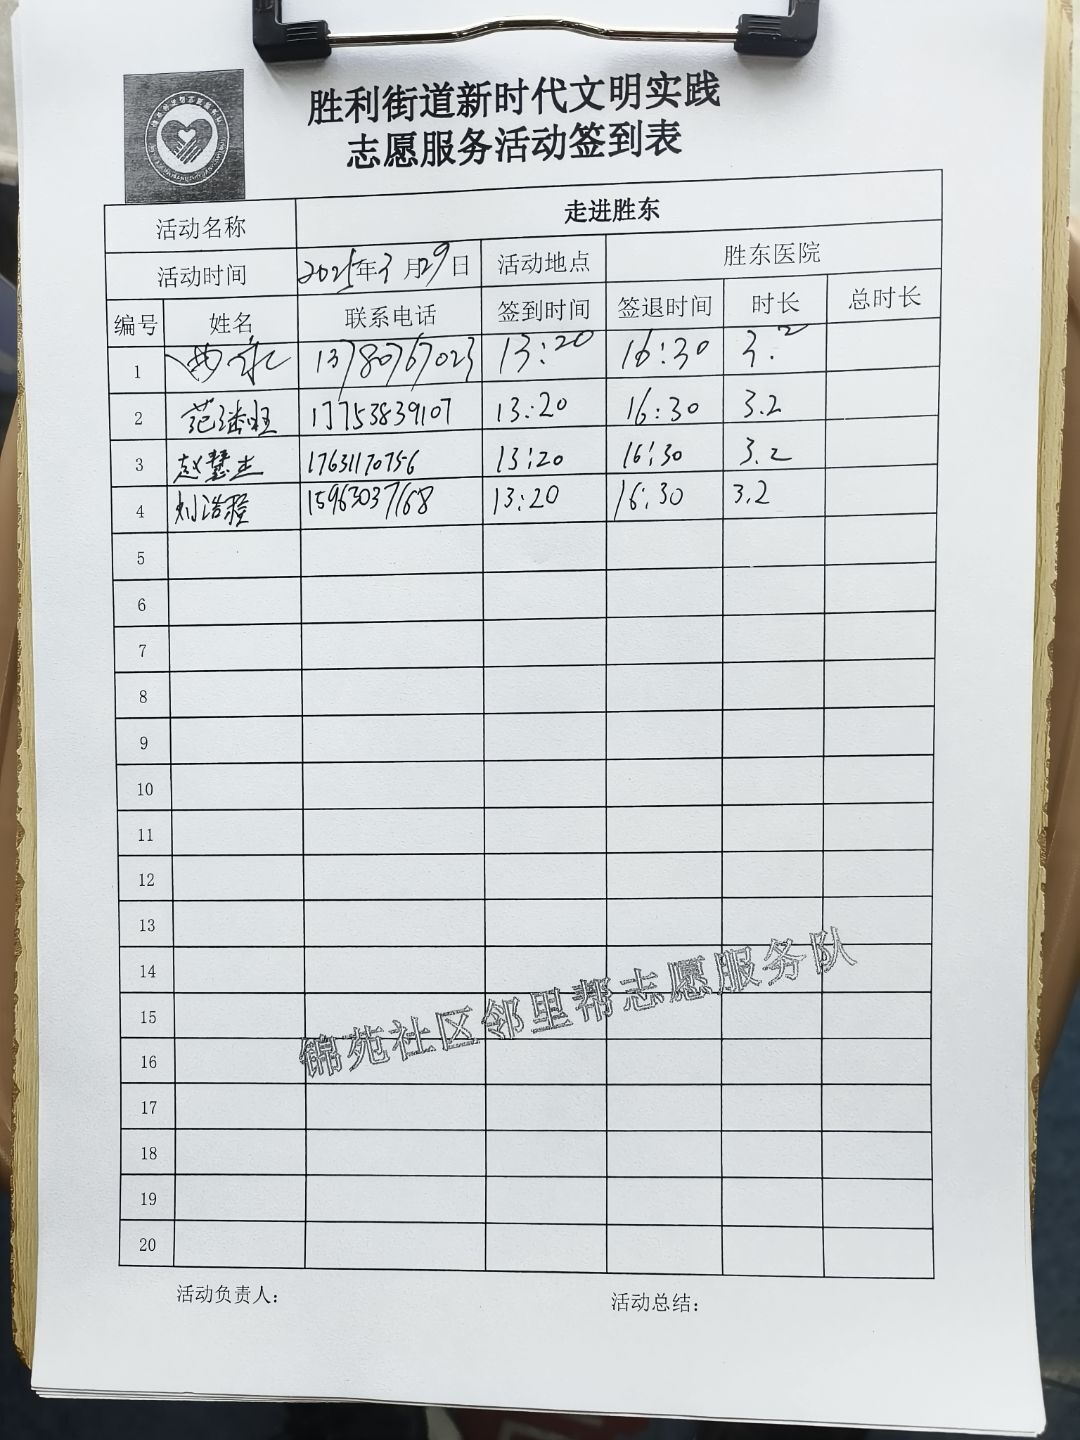 胜利街道新时代文明实践
志愿服务活动签到表
活动名称 走进胜东
活动时间 2025年3月29日 活动地点 胜东医院
编号 姓名 联系电话 签到时间 签退时间 时长 总时长
1 13780767023 13:20 16:30 3.2
2 范 17753839107 13:20 16:30 3.2
3 赵慧 17631170756 13:20 16:30 3.2
4 刘浩 15963037168 13:20 16:30 3.2
5
6
7
8
9
10
11
12
13
14
15
16
17
18
19
20
锦苑社区邻里帮志愿服务队
活动负责人： 活动总结：